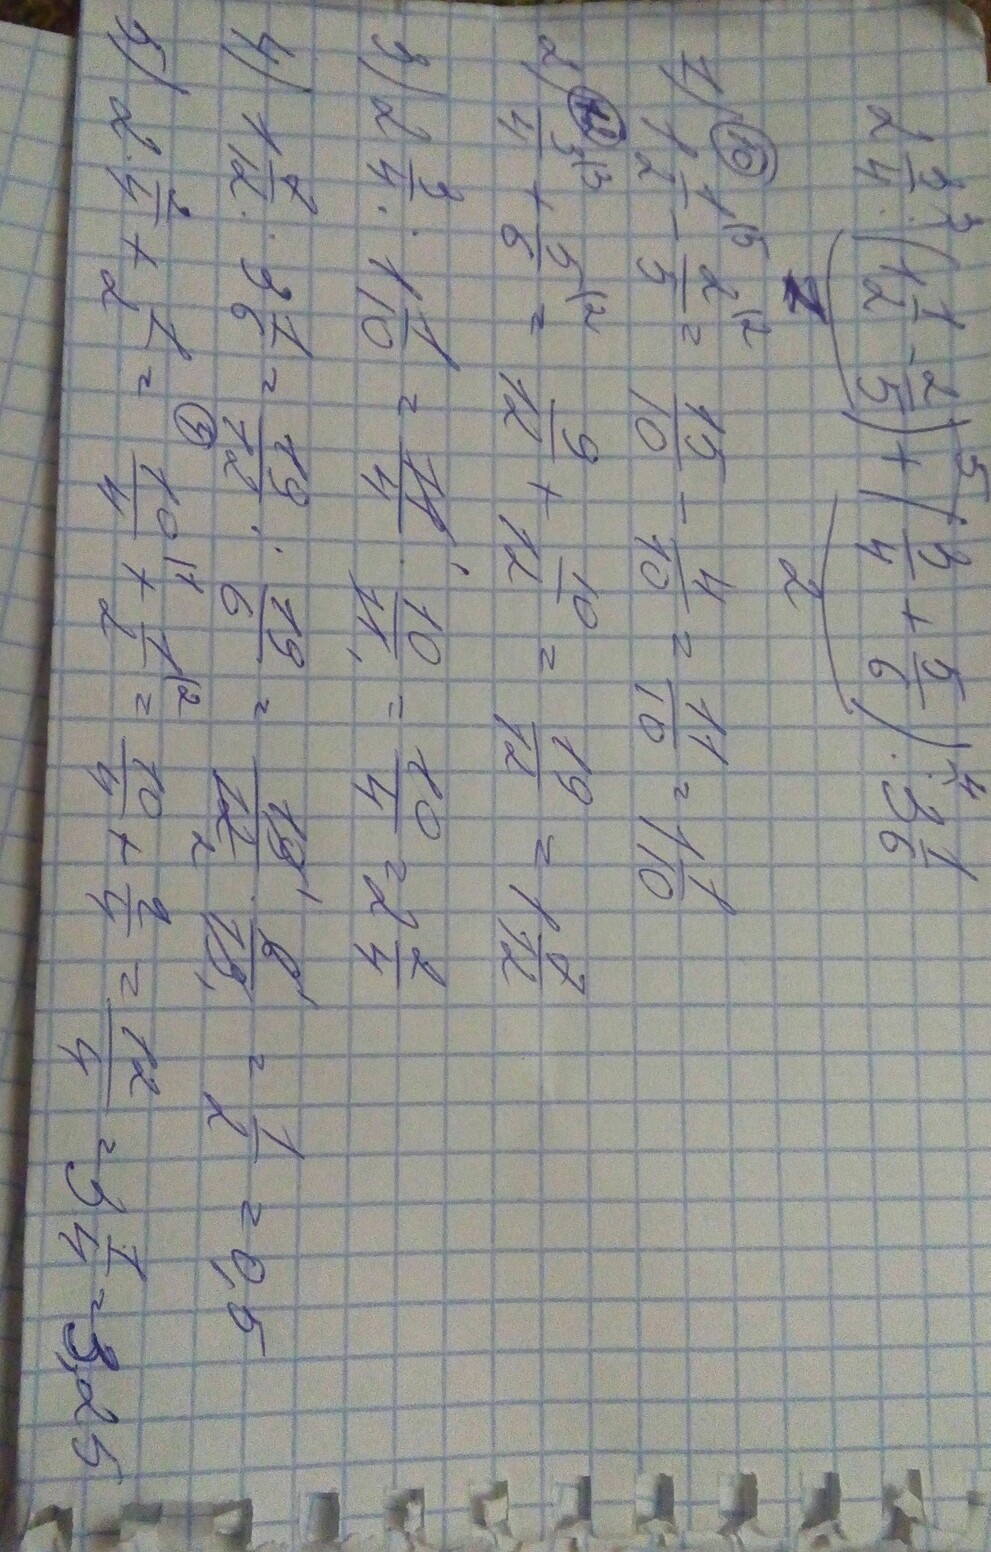 2 3/4 : (1 1/2 - 2/5) + (3/4 + 5/6) : 3 1/6
1) 1 1/2 - 2/5 = 15/10 - 4/10 = 11/10 = 1 1/10
2) 3/4 + 5/6 = 9/12 + 10/12 = 19/12 = 1 7/12
3) 2 3/4 : 1 1/10 = 11/4 · 10/11 = 10/4 = 2 2/4
4) 1 7/12 : 3 1/6 = 19/12 : 19/6 = 19/12 · 6/19 = 1/2 = 0,5
5) 2 2/4 + 1/2 = 10/4 + 1/2 = 10/4 + 2/4 = 12/4 = 3 1/4 = 3,25